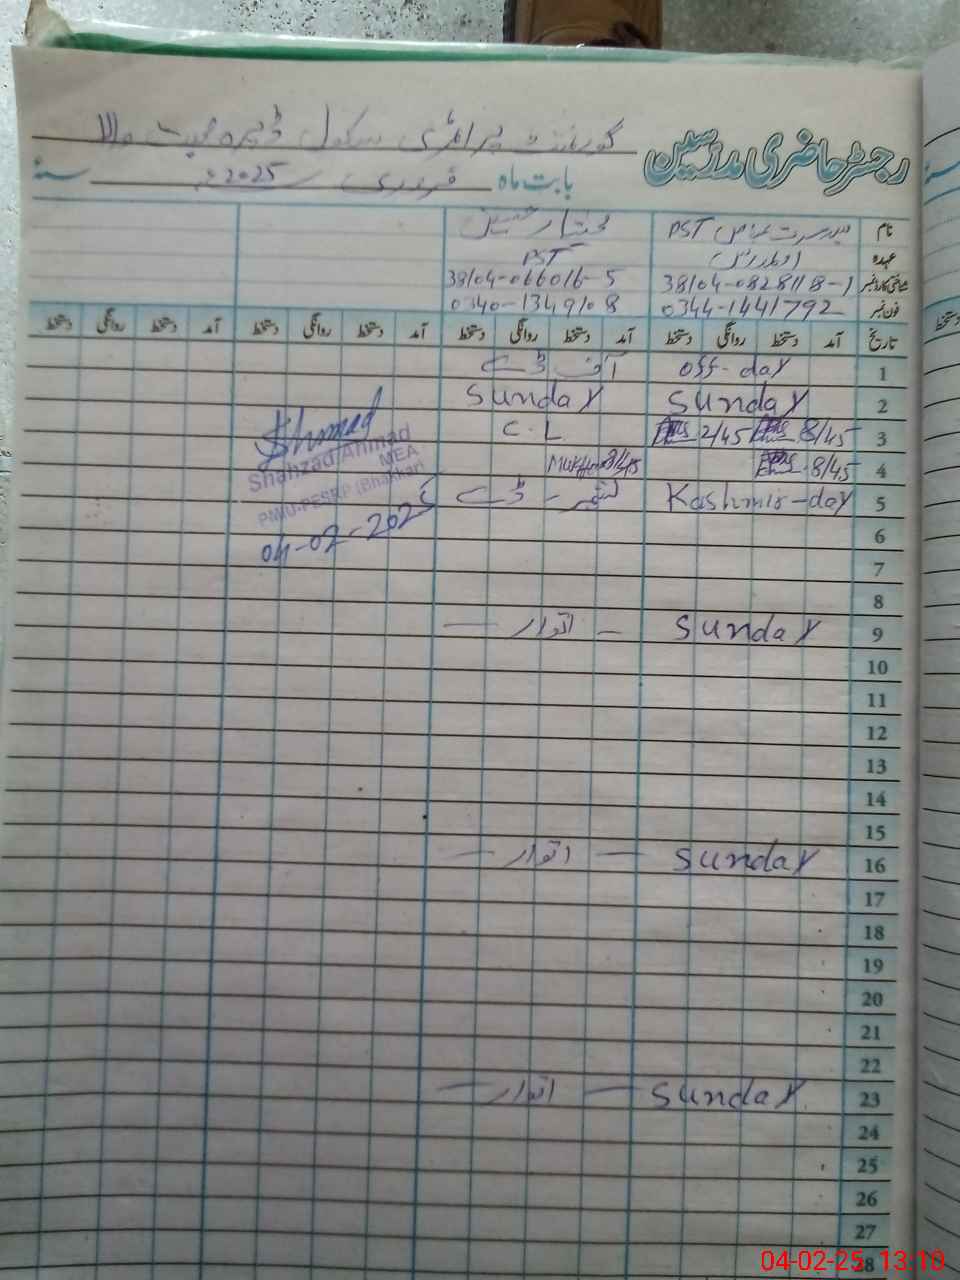 رجسٹر حاضری مدرسین گورنمنٹ پرائمری سکول ڈیرہ محبت والا
بابت ماہ فروری 2025ء سنہ
نام PST مختار حسین
عہدہ PST
شناختی کارڈ نمبر 38104-0828118-1 38104-066016-5
فون نمبر 0344-1441792 0340-1349108
تاریخ آمد دستخط روانگی دستخط آمد دستخط روانگی دستخط آمد دستخط روانگی دستخط آمد دستخط روانگی دستخط
1 off-day آف ڈے
2 Sunday Sunday
3 8/45 2/45 C.L
4 8/45 8/45
5 Kashmir-day کشمیر ڈے
Shahzad Ahmad
MEA
PMIU-PESRP (Bhakkar)
04-02-2025
6
7
8
9 Sunday — اتوار —
10
11
12
13
14
15
16 Sunday — اتوار —
17
18
19
20
21
22
23 Sunday — اتوار —
24
25
26
27
28
04-02-25 13:10